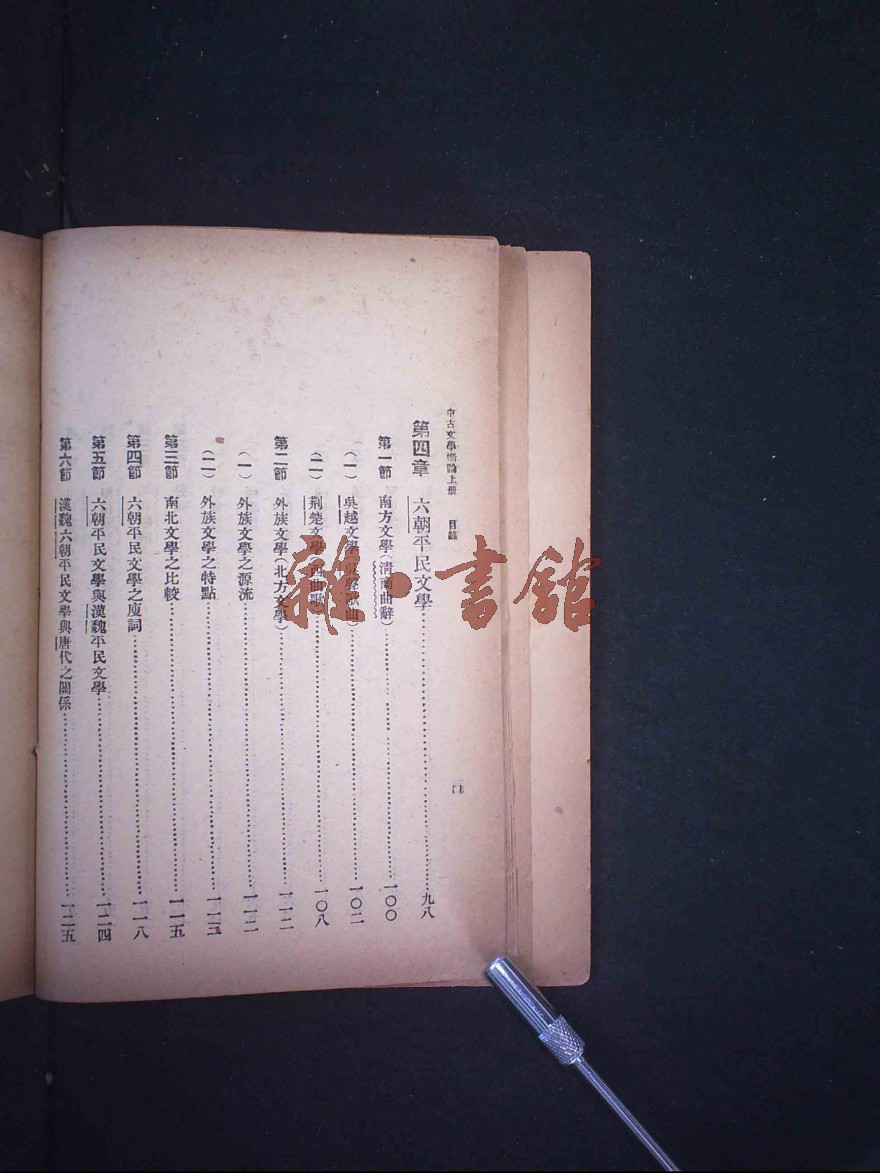 中古文學概論上册　目錄
第四章　六朝平民文學……九八
第一節　南方文學(淸商曲辭)……一〇〇
(一)　吳越文學(吳聲歌曲)……一〇二
(二)　荆楚文學(西曲歌)……一〇八
第二節　外族文學(北方文學)……一一二
(一)　外族文學之源流……一一二
(二)　外族文學之特點……一一三
第三節　南北文學之比較……一一五
第四節　六朝平民文學之廋詞……一一八
第五節　六朝平民文學與漢魏平民文學……一二四
第六節　漢魏六朝平民文學與唐代之關係……一二五
雜·書館